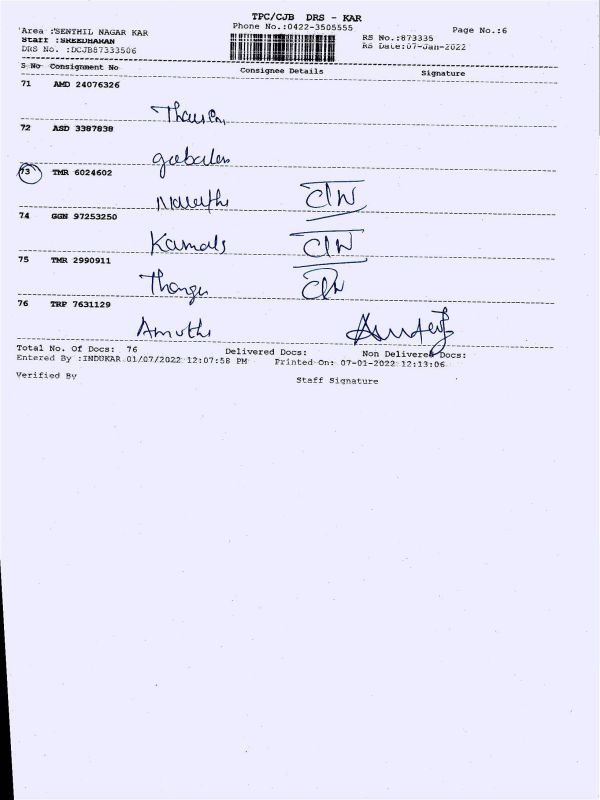 TPC/CJB DRS - KAR
Phone No.:0422-3505555
Page No.:6
Area :SENTHIL NAGAR KAR
Staff :SREEDHARAN
DRS No. :DCJB87333506
RS No.:873335
RS Date:07-Jan-2022
S No Consignment No Consignee Details Signature
71 AMD 24076326
72 ASD 3387838
73 TMR 6024602
74 GGN 97253250
Kamals
75 TMR 2990911
76 TRP 7631129
Amuthi
Total No. Of Docs: 76 Delivered Docs: Non Delivered Docs:
Entered By :INDUKAR 01/07/2022 12:07:58 PM Printed On: 07-01-2022 12:13:06
Verified By
Staff Signature